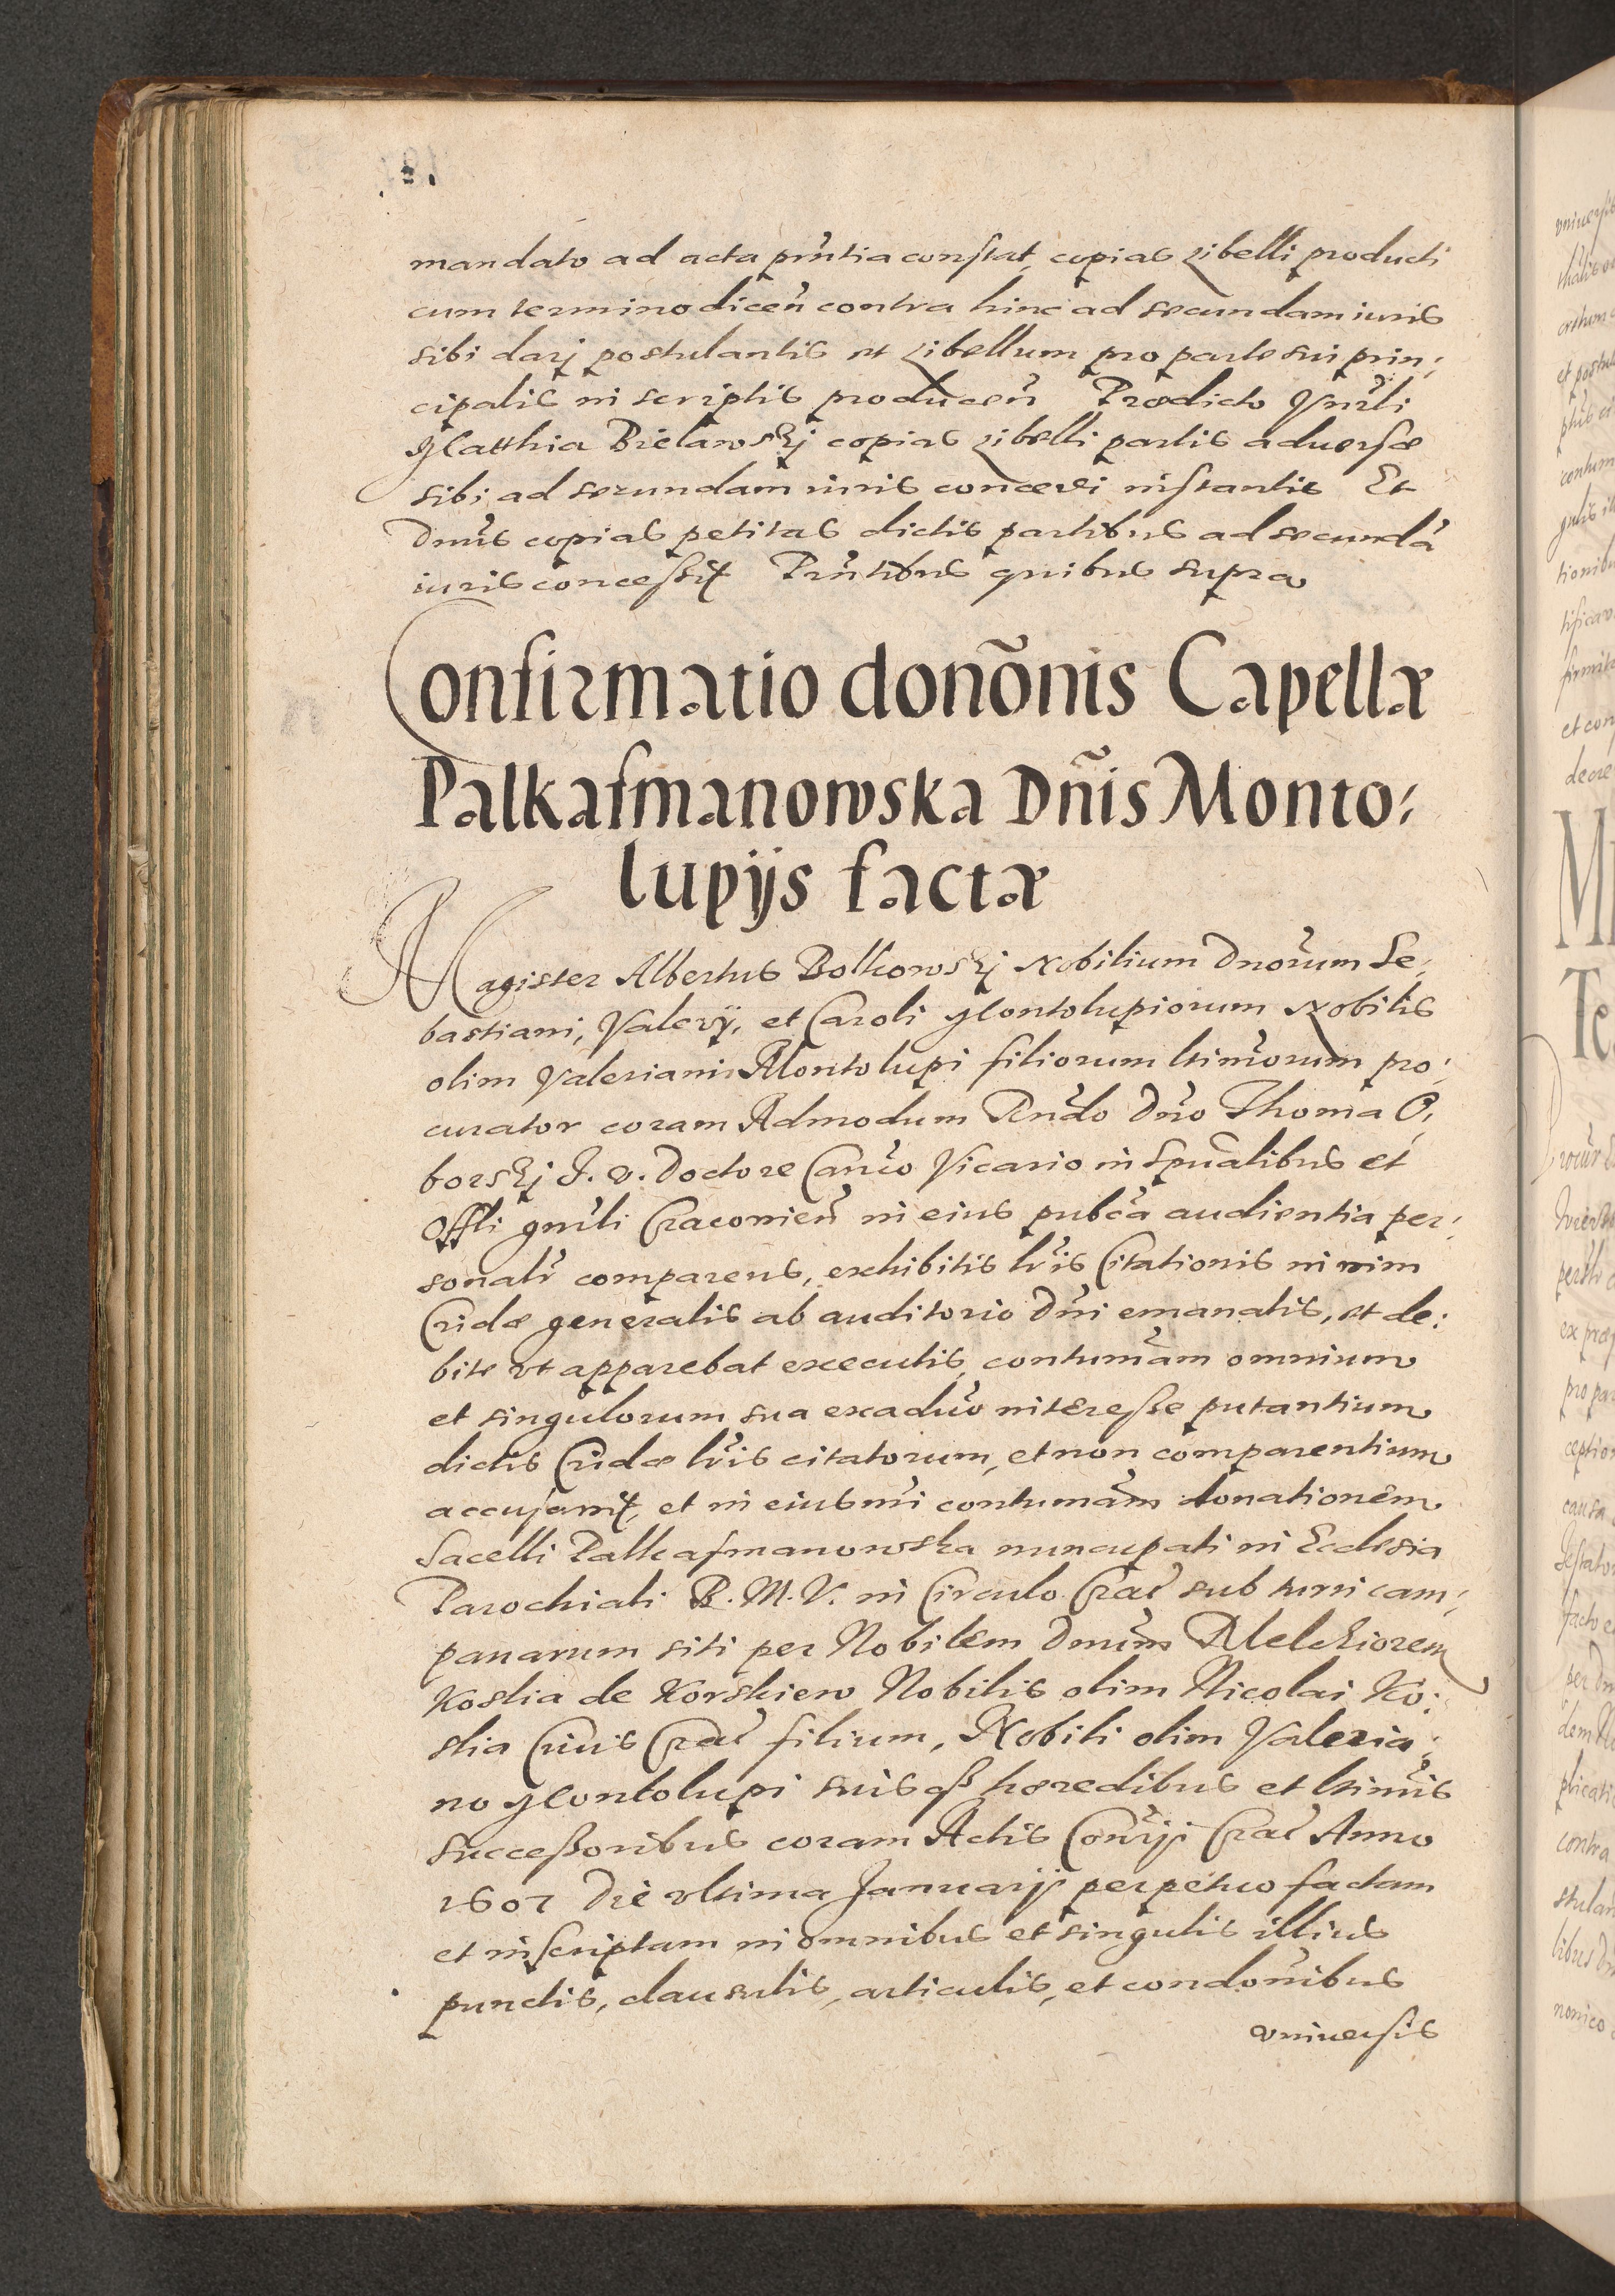 mandato ad acta pñtia constat, copias Libelli producti
cum termino dicen̄ contra hinc ad secundam iuris
sibi darj postulantis et Libellum pro parte sui prin:
cipalis in scriptis producen̄ Prædicto Gnrli
Matthia Bielawskj copias Libelli partis aduersæ
sibi ad secundam iuris concedi instantis Et
Dnūs copias petitas dictis partibus ad secundā
iuris concessit Pn̄tibus quibus supra
Confirmatio donõnis Capellæ
Palkasmanowska Dñis Monto:
lupijs factæ
Magister Albertus Bolkowskj Nobilium Dnōrum Se:
bastiani, Valerÿ, et Caroli Montolupiorum Nobilis
olim Valeriani Montolupi filiorum ltimōrum pro:
curator coram Admodum Rn̄do Dn̄o Thoma O:
borskj J. V. Doctore Can̄co Vicario in Spūalibus et
Offli gnr̄li Cracouien̄ in eius pubc̄a audientia per:
sonalr̄ comparens, exhibitis lr̄is Citationis in vim
Cridæ generalis ab auditorio Dn̄i emanatis, et de:
bite vt apparebat executis, contumām omnium
et singulorum sua exaduō interesse putantium
dictis Cridæ lr̄is citatorum, et non comparentium
accusauit, et in eiusmi contumām donationem
Sacelli Palkasmanowska nuncupati in Ecclesia
Parochiali B. M. V. in Circulo Crac̄ sub turri cam:
panarum siti per Nobilem Dnūm Melchiorem
Kostka de Korzkiew Nobilis olim Nicolai Ko:
stka Ciuis Crac̄ filium, Nobili olim Valeria:
no Montolupi suisq̨ hæredibus et ltimis
successoribus coram Actis Con̄rijs Crac̄ Anno
1607 Die vltima Januarij perpetuo factam
et inscriptam in omnibus et singulis illius
punctis, clausulis, articulis, et condōnibus
vniuersis